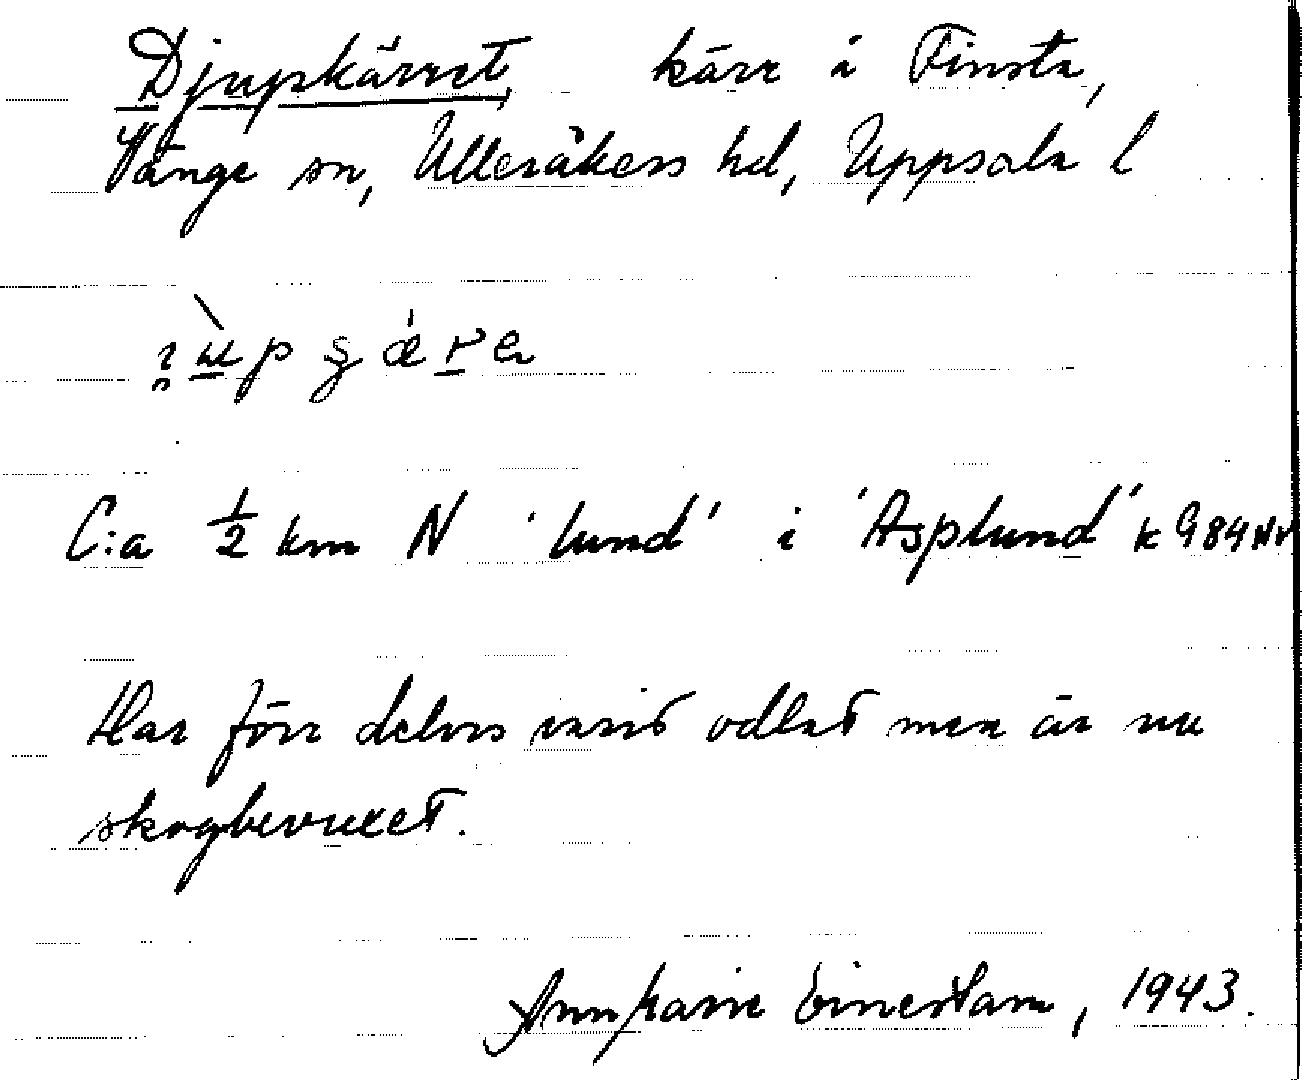 Djupkärret, kärr i Finsta,
Vänge sn, Ulleråkers hd, Uppsala l
C:a ½ km N 'lund' i 'Asplund' k 984 NV
Har förr delvis varit odlat men är nu
skogbevuxet.
Annkarie Einerstam, 1943.